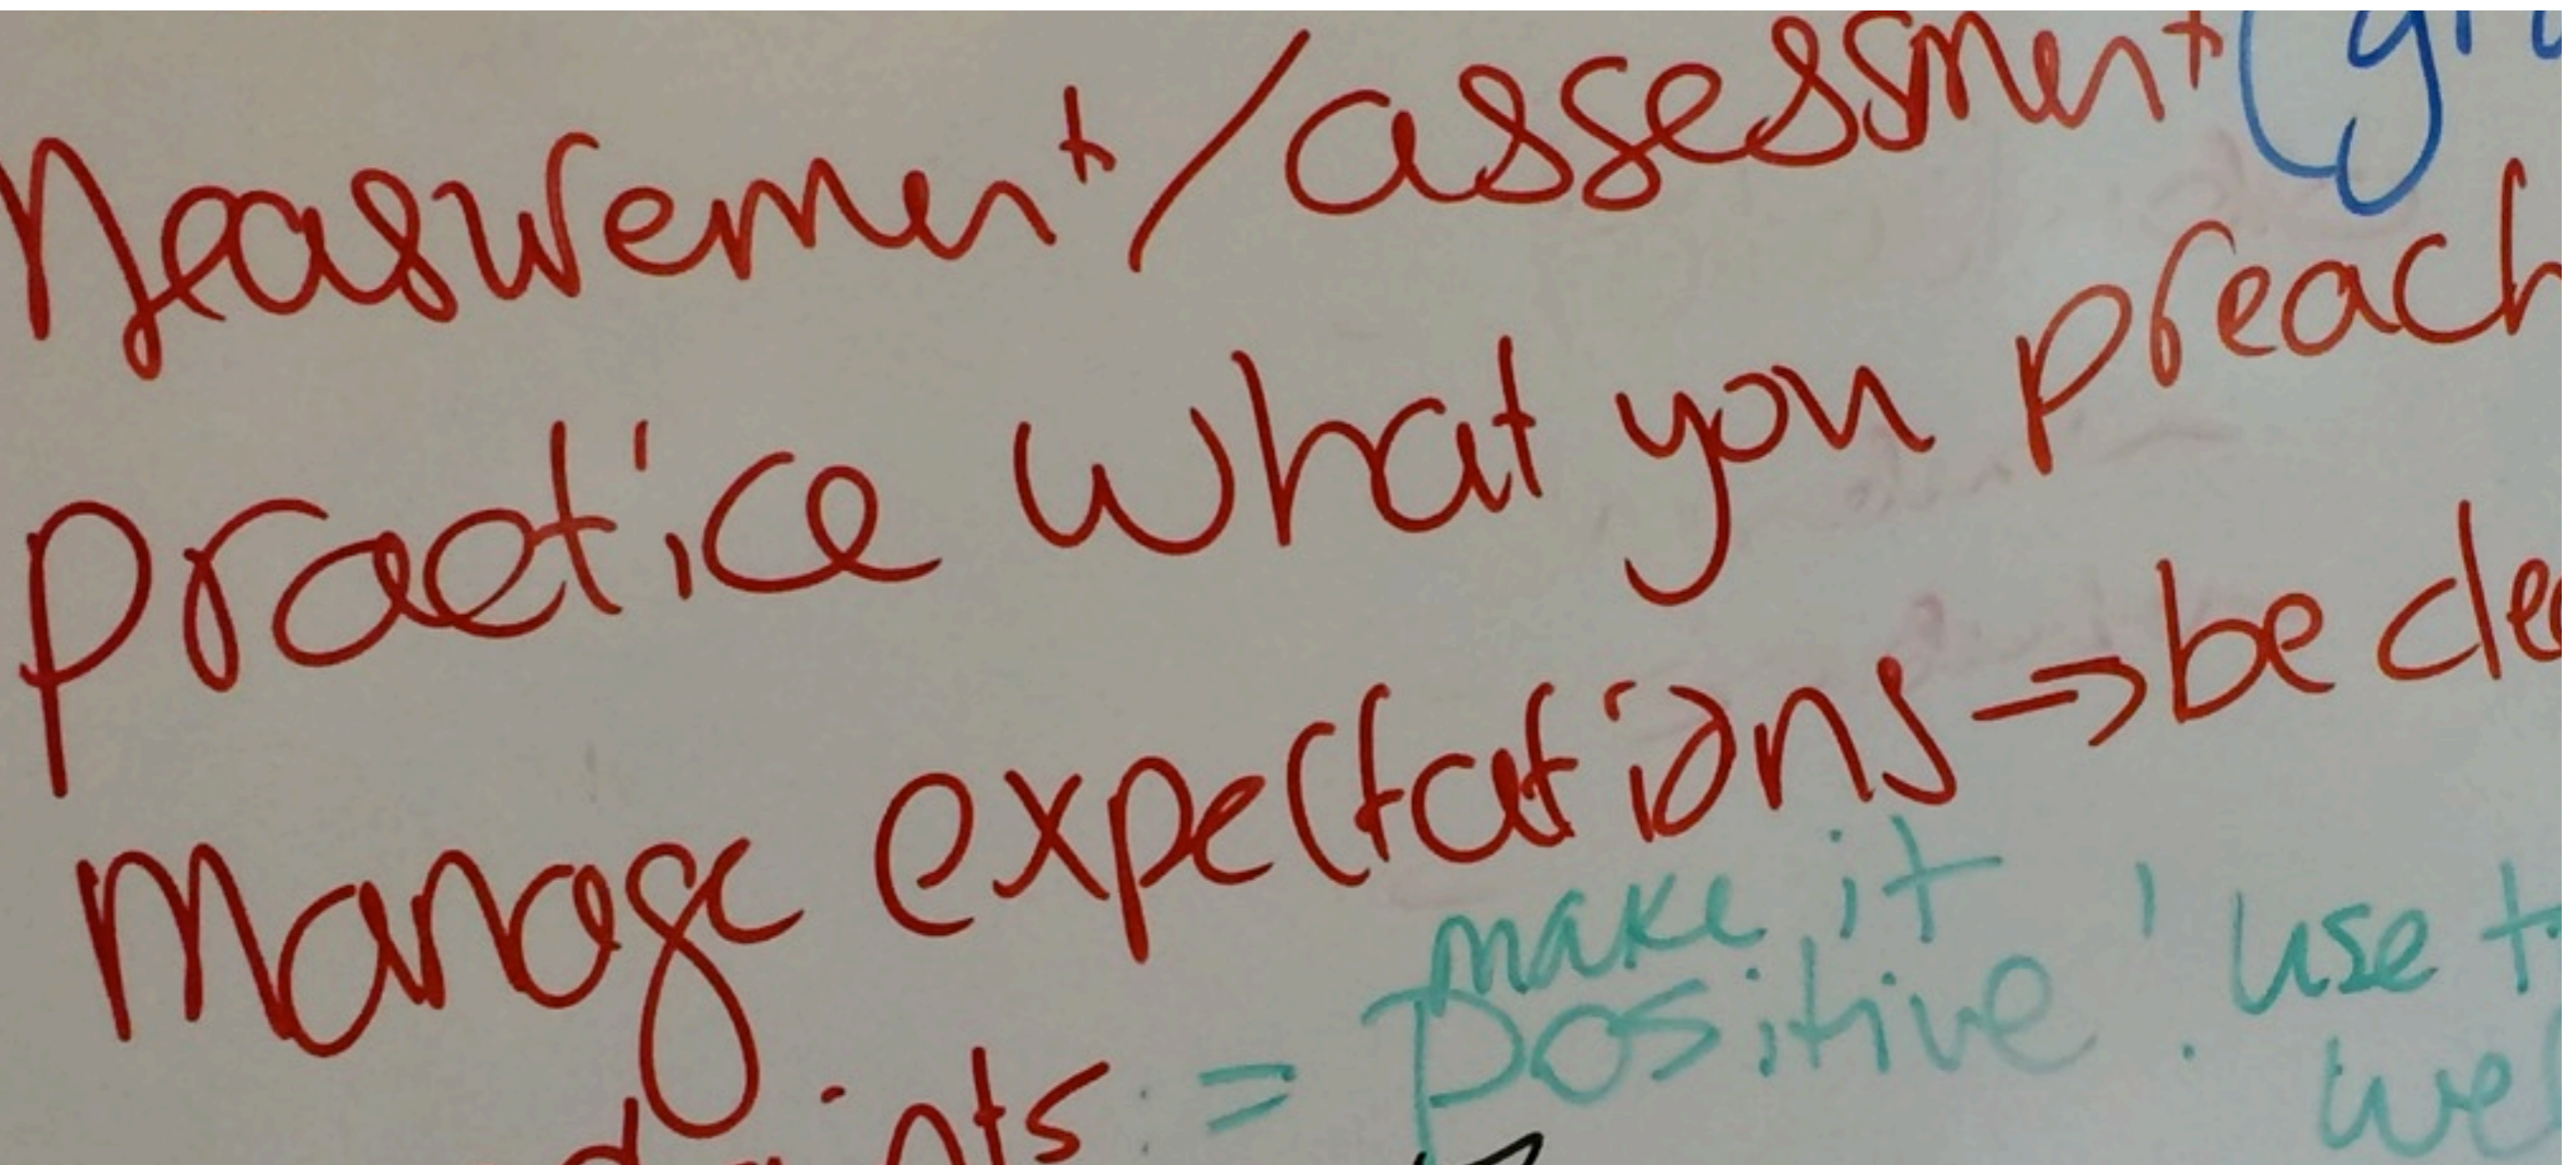 Measurement/assessment
practice what you preach
Manage expectations → be
make it
= positive ! use